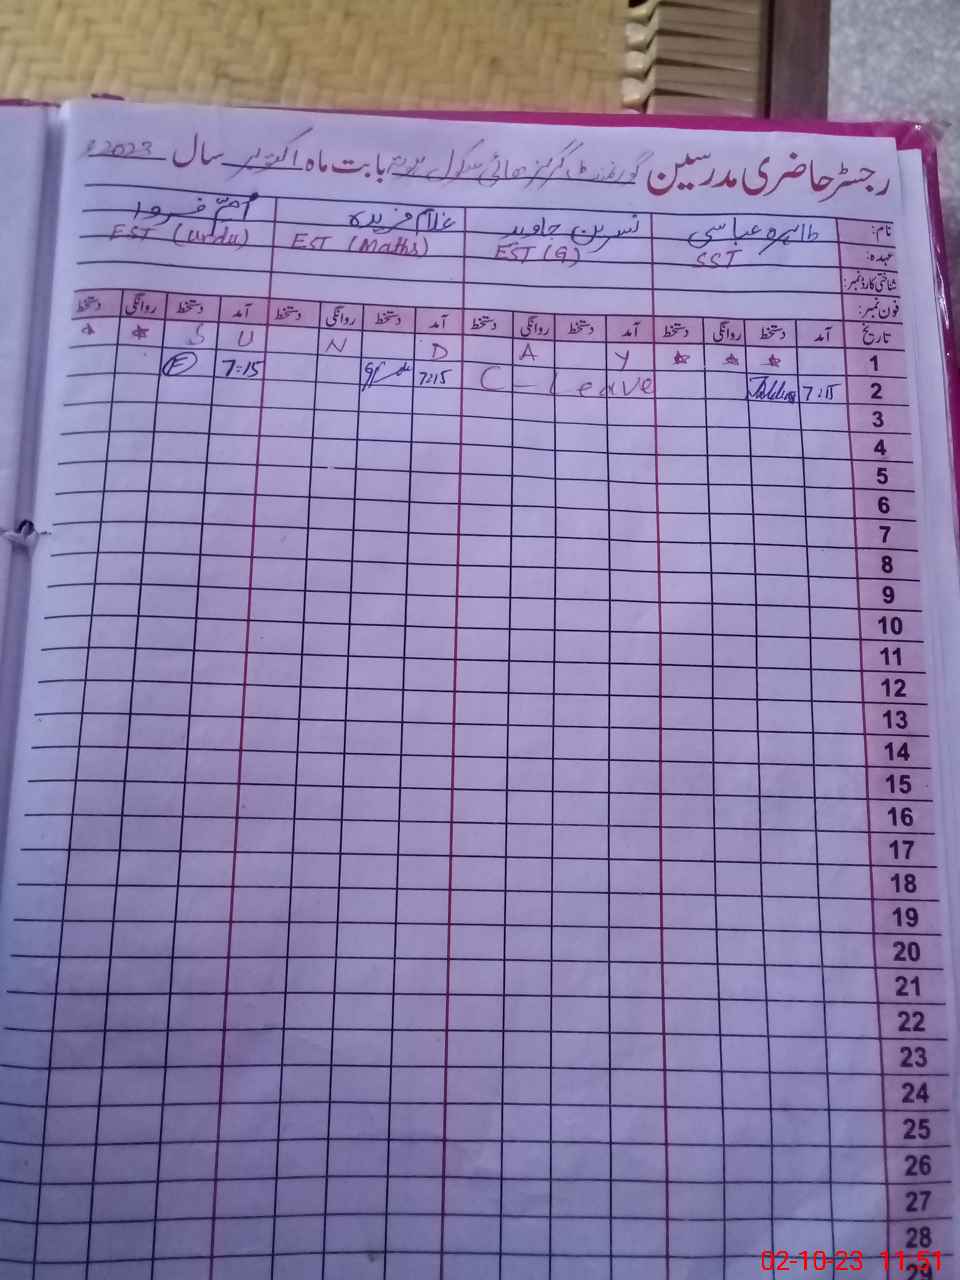 رجسٹر حاضری مدرسین گورنمنٹ گرلز ہائی سکول بابت ماہ اکتوبر سال 2023ء
نام: طاہرہ عباسی نسرین جاوید غلام فریدہ اُمِّ فروا
عہدہ: SST EST (G) EST (Maths) EST (Urdu)
شناختی کارڈ نمبر:
فون نمبر:
تاریخ آمد دستخط روانگی دستخط آمد دستخط روانگی دستخط آمد دستخط روانگی دستخط آمد دستخط روانگی دستخط
1 S U N D A Y
2 7:15 C - Leave 7:15 7:15
3
4
5
6
7
8
9
10
11
12
13
14
15
16
17
18
19
20
21
22
23
24
25
26
27
28
29
02-10-23 11:51